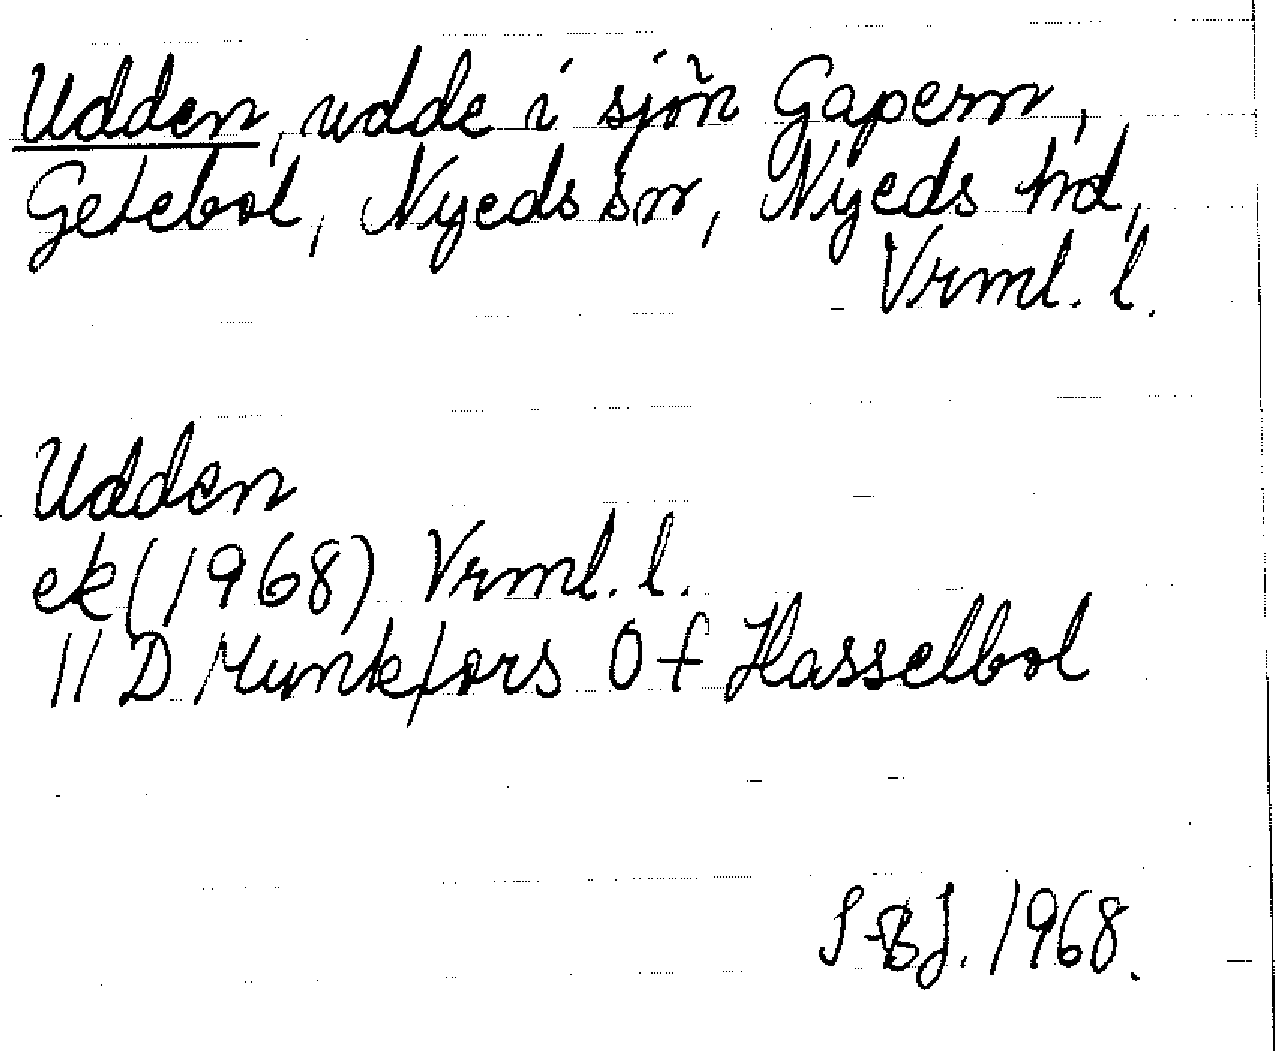 Udden, udde i sjön Gapern,
Getebol, Nyeds sn, Nyeds hd,
Vrml. l.
Udden
ek (1968) Vrml. l.
11 D Munkfors 0 f Hasselbol
S-BJ. 1968.